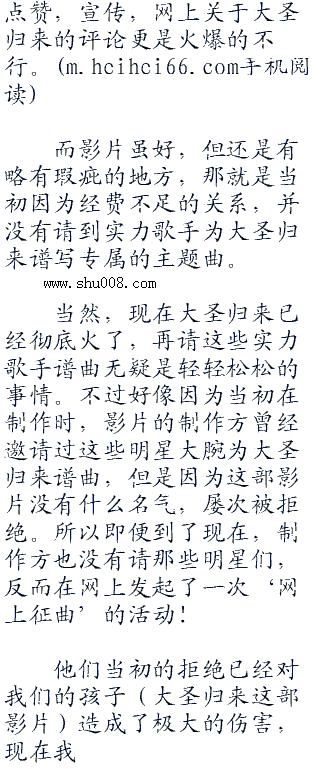 点赞，宣传，网上关于大圣
归来的评论更是火爆的不
行。(m.hcihci66.com手机阅
读)
而影片虽好，但还是有
略有瑕疵的地方，那就是当
初因为经费不足的关系，并
没有请到实力歌手为大圣归
来谱写专属的主题曲。
www.shu008.com
当然，现在大圣归来已
经彻底火了，再请这些实力
歌手谱曲无疑是轻轻松松的
事情。不过好像因为当初在
制作时，影片的制作方曾经
邀请过这些明星大腕为大圣
归来谱曲，但是因为这部影
片没有什么名气，屡次被拒
绝。所以即便到了现在，制
作方也没有请那些明星们，
反而在网上发起了一次‘网
上征曲’的活动！
他们当初的拒绝已经对
我们的孩子（大圣归来这部
影片）造成了极大的伤害，
现在我